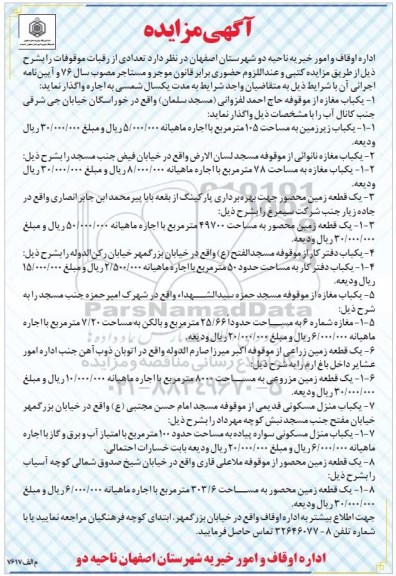 آگهی مزایده
اداره اوقاف و امور خیریه ناحیه دو شهرستان اصفهان در نظر دارد تعدادی از رقبات موقوفات را بشرح
ذیل از طریق مزایده کتبی و عنداللزوم حضوری برابر قانون موجر و مستاجر مصوب سال ۷۶ و آیین‌نامه
اجرائی آن با شرایط ذیل به متقاضیان واجد شرایط به مدت یکسال شمسی به اجاره واگذار نماید:
۱- یکباب مغازه از موقوفه حاج احمد لفزوانی (مسجد سلمان) واقع در خوراسگان خیابان جی شرقی
جنب کانال آب را با مشخصات ذیل واگذار نماید:
۱-۱- یکباب زیرزمین به مساحت ۱۰۵ مترمربع با اجاره ماهیانه ۵/۰۰۰/۰۰۰ ریال و مبلغ ۳۰/۰۰۰/۰۰۰ ریال
ودیعه.
۲- یکباب مغازه نانوائی از موقوفه مسجد لسان الارض واقع در خیابان فیض جنب مسجد را بشرح ذیل:
۱-۲- یکباب مغازه به مساحت ۷۸ مترمربع با اجاره ماهیانه ۸/۰۰۰/۰۰۰ ریال و مبلغ ۳۰/۰۰۰/۰۰۰ ریال
ودیعه.
۳- یک قطعه زمین محصور جهت بهره‌برداری پارکینگ از بقعه بابا پیرمحمد ابن جابر انصاری واقع در
جاده زیار جنب شرکت سیمرغ را بشرح ذیل:
۱-۳- یک قطعه زمین محصور به مساحت ۴۹۷۰۰ مترمربع با اجاره ماهیانه ۵۰/۰۰۰/۰۰۰ ریال و مبلغ
۳۰/۰۰۰/۰۰۰ ریال ودیعه.
۴- یکباب دفتر کار از موقوفه مسجد الفتح (ع) واقع در خیابان بزرگمهر خیابان رکن الدوله را بشرح ذیل:
۱-۴- یکباب دفتر کار به مساحت حدود ۵۰ مترمربع با اجاره ماهیانه ۲/۵۰۰/۰۰۰ ریال و مبلغ ۱۵/۰۰۰/۰۰۰
ریال ودیعه.
۵- یکباب مغازه از موقوفه مسجد حمزه سیدالشهداء واقع در شهرک امیرحمزه جنب مسجد را به
شرح ذیل:
۱-۵- مغازه شماره ۶ به مساحت حدودا ۲۵/۶۶ مترمربع و بالکن به مساحت ۷/۲۰ مترمربع با اجاره
ماهیانه ۶/۰۰۰/۰۰۰ ریال و مبلغ ۲۰/۰۰۰/۰۰۰ ریال ودیعه.
۶- یک قطعه زمین زراعی از موقوفه اکبر میرزا صارم الدوله واقع در اتوبان ذوب آهن جنب اداره امور
عشایر داخل باغ ارم را به شرح ذیل:
۱-۶- یک قطعه زمین مزروعی به مساحت ۸۰۰۰ مترمربع با اجاره ماهیانه ۱۰/۰۰۰/۰۰۰ ریال و مبلغ
۳۰/۰۰۰/۰۰۰ ریال ودیعه.
۷- یکباب منزل مسکونی قدیمی از موقوفه مسجد امام حسن مجتبی (ع) واقع در خیابان بزرگمهر
خیابان مفتح جنب مسجد نبش کوچه مهرداد را بشرح ذیل:
۱-۷- یکباب منزل مسکونی سواره پیاده به مساحت حدود ۱۰۰ مترمربع با امتیاز آب و برق و گاز با اجاره
ماهیانه ۶/۰۰۰/۰۰۰ ریال و مبلغ ۲۰/۰۰۰/۰۰۰ ریال ودیعه بابت خسارات احتمالی.
۸- یک قطعه زمین محصور از موقوفه ملاعلی قاری واقع در خیابان شیخ صدوق شمالی کوچه آسیاب
را بشرح ذیل:
۱-۸- یک قطعه زمین محصور به مساحت ۳۰۳/۶ مترمربع با اجاره ماهیانه ۶/۰۰۰/۰۰۰ ریال و مبلغ
۳۰/۰۰۰/۰۰۰ ریال ودیعه.
جهت اطلاع بیشتر به اداره اوقاف واقع در خیابان بزرگمهر، ابتدای کوچه فرهنگیان مراجعه نمایید یا با
شماره تلفن ۸-۳۲۶۴۶۰۷۷ تماس حاصل فرمایید.
اداره اوقاف و امور خیریه شهرستان اصفهان ناحیه دو
م الف ۷۶۱۷
ParsNamadData
۰۲۱-۸۸۳۴۹۶۷۰-۵